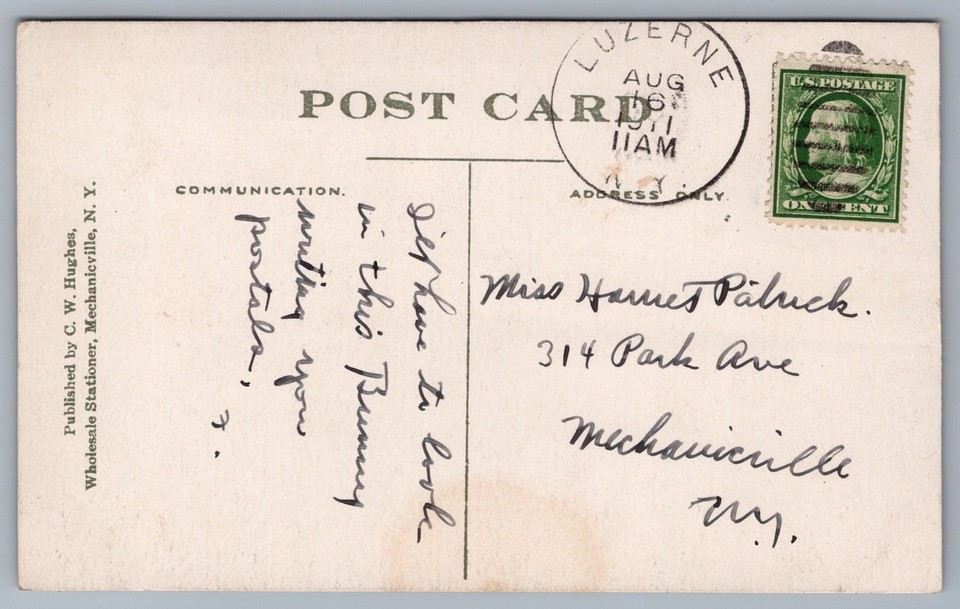 POST CARD
LUZERNE
AUG
16
1911
11AM
N.Y.
U.S. POSTAGE
ONE CENT
COMMUNICATION.
ADDRESS ONLY.
I'll have to look
in this Bunny
writing you
postals.
F.
Miss Harriet Patrick.
314 Park Ave
Mechanicville
N.Y.
Published by C. W. Hughes,
Wholesale Stationer, Mechanicville, N. Y.